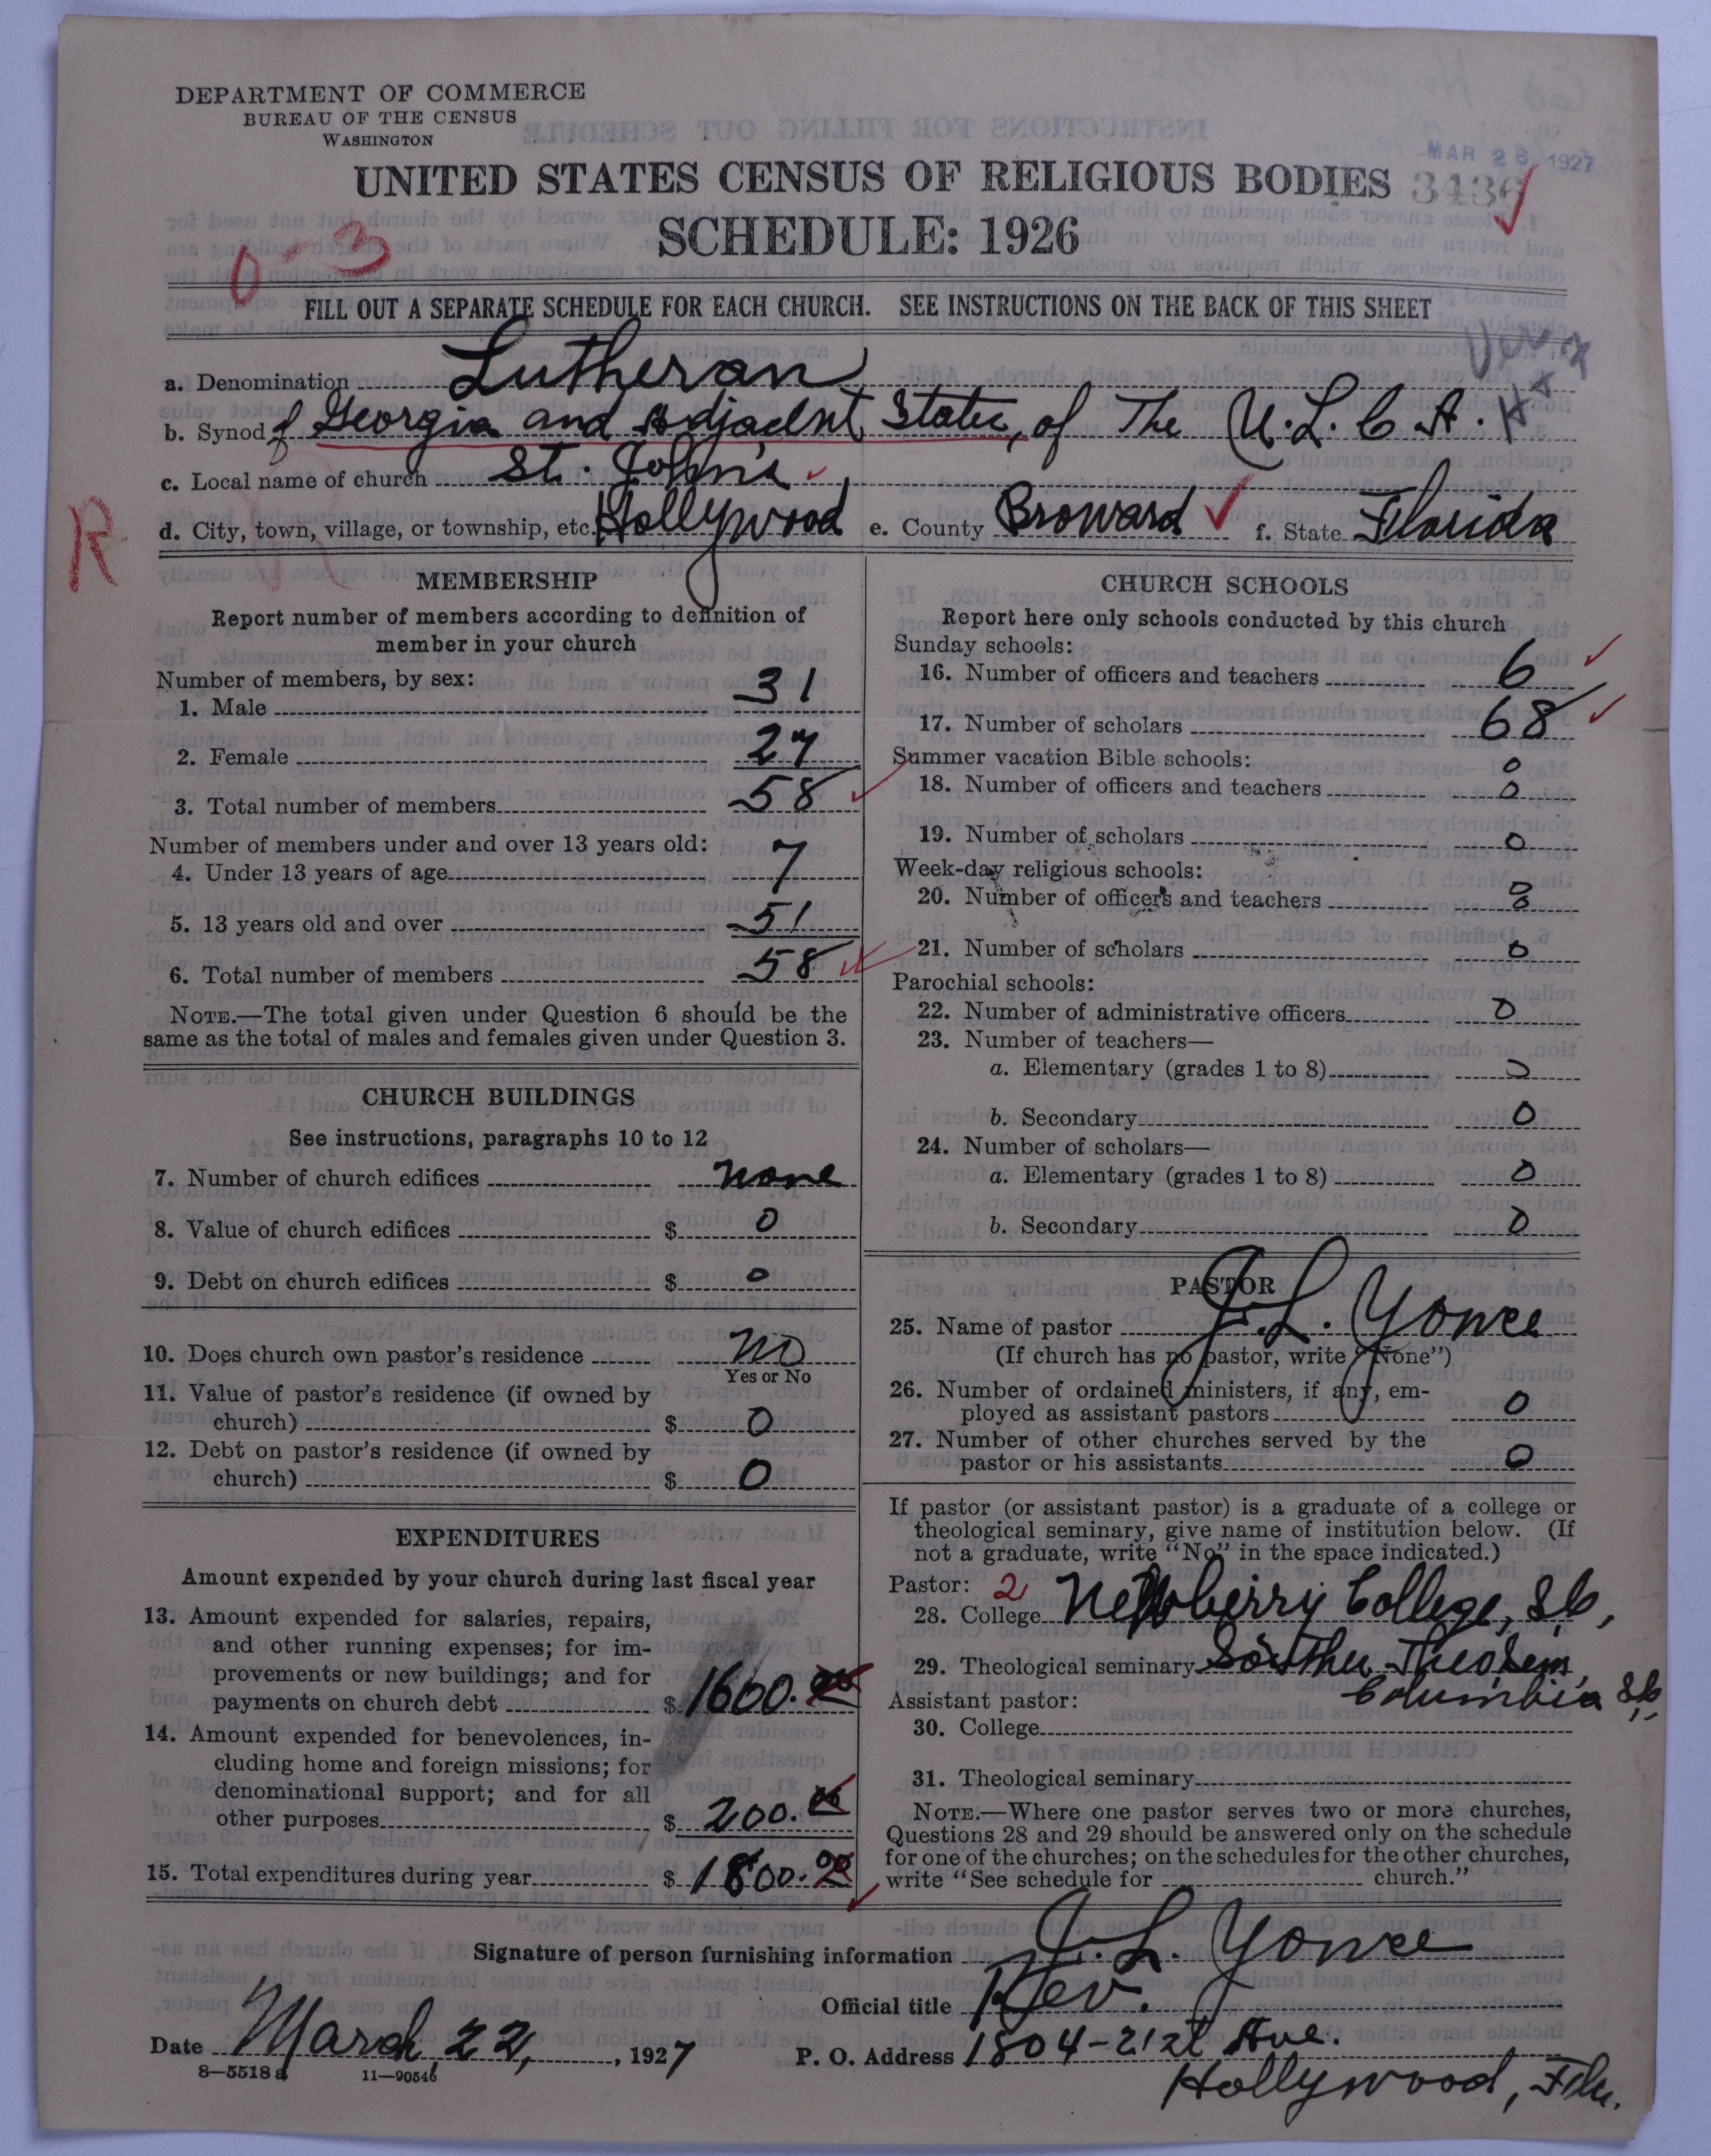 DEPARTMENT OF COMMERCE
BUREAU OF THE CENSUS
WASHINGTON
MAR 26 1927
UNITED STATES CENSUS OF RELIGIOUS BODIES 3436
SCHEDULE: 1926
0-3
FILL OUT A SEPARATE SCHEDULE FOR EACH CHURCH. SEE INSTRUCTIONS ON THE BACK OF THIS SHEET
a. Denomination Lutheran
b. Synod of Georgia and Adjacent States, of The U.L.C.A.
c. Local name of church St. John's
R
d. City, town, village, or township, etc. Hollywood e. County Broward f. State Florida
MEMBERSHIP
Report number of members according to definition of
member in your church
Number of members, by sex:
1. Male 31
2. Female 27
3. Total number of members 58
Number of members under and over 13 years old:
4. Under 13 years of age 7
5. 13 years old and over 51
6. Total number of members 58
NOTE.—The total given under Question 6 should be the
same as the total of males and females given under Question 3.
CHURCH BUILDINGS
See instructions, paragraphs 10 to 12
7. Number of church edifices none
8. Value of church edifices $ 0
9. Debt on church edifices $ 0
10. Does church own pastor's residence no
Yes or No
11. Value of pastor's residence (if owned by
church) $ 0
12. Debt on pastor's residence (if owned by
church) $ 0
EXPENDITURES
Amount expended by your church during last fiscal year
13. Amount expended for salaries, repairs,
and other running expenses; for im-
provements or new buildings; and for
payments on church debt $ 1600.00
14. Amount expended for benevolences, in-
cluding home and foreign missions; for
denominational support; and for all
other purposes $ 200.00
15. Total expenditures during year $ 1800.00
CHURCH SCHOOLS
Report here only schools conducted by this church
Sunday schools:
16. Number of officers and teachers 6
17. Number of scholars 68
Summer vacation Bible schools: 0
18. Number of officers and teachers 0
19. Number of scholars 0
Week-day religious schools:
20. Number of officers and teachers 0
21. Number of scholars 0
Parochial schools:
22. Number of administrative officers 0
23. Number of teachers—
a. Elementary (grades 1 to 8) 0
b. Secondary 0
24. Number of scholars—
a. Elementary (grades 1 to 8) 0
b. Secondary 0
PASTOR
25. Name of pastor J. L. Yonce
(If church has no pastor, write "None")
26. Number of ordained ministers, if any, em-
ployed as assistant pastors 0
27. Number of other churches served by the
pastor or his assistants 0
If pastor (or assistant pastor) is a graduate of a college or
theological seminary, give name of institution below. (If
not a graduate, write "No" in the space indicated.)
Pastor: 2
28. College Newberry College, S.C.,
29. Theological seminary Southn Theo Sem,
Columbia S.C.
Assistant pastor:
30. College
31. Theological seminary
NOTE.—Where one pastor serves two or more churches,
Questions 28 and 29 should be answered only on the schedule
for one of the churches; on the schedules for the other churches,
write "See schedule for church."
Signature of person furnishing information J. L. Yonce
Official title Rev.
Date March 22, 1927 P. O. Address 1804-21st Ave.
Hollywood, Fla.
8—5518 a 11—90546